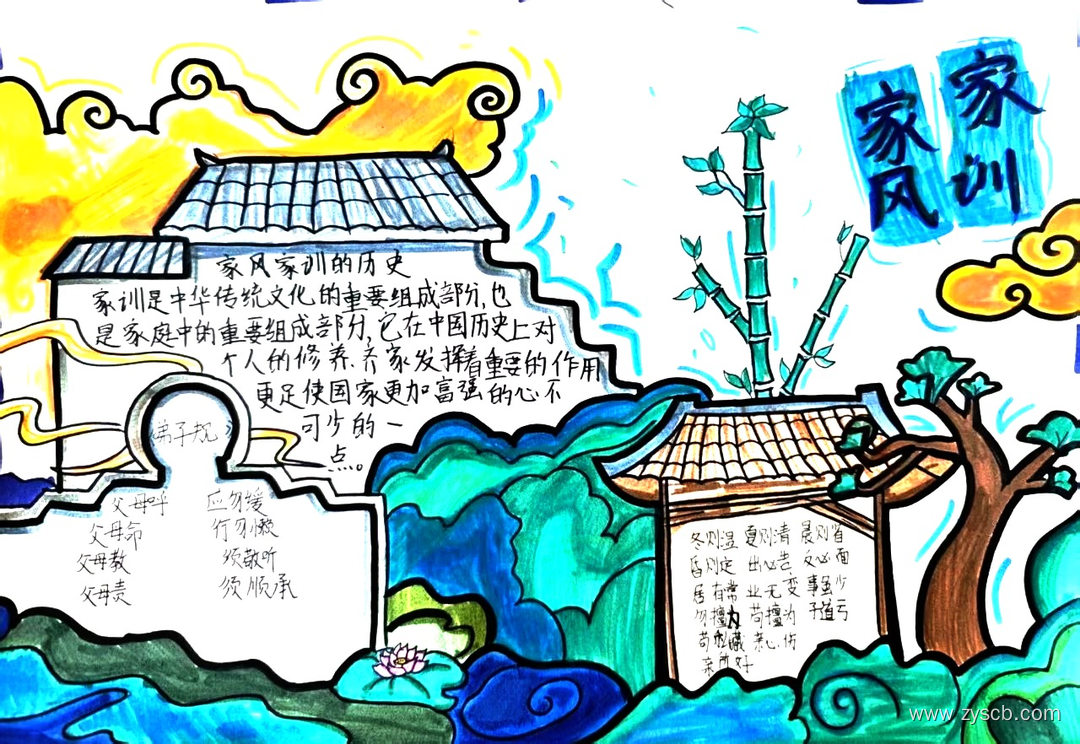 家训
家风
家风家训的历史
家训是中华传统文化的重要组成部分,也
是家庭中的重要组成部分,它在中国历史上对
个人的修养、齐家发挥着重要的作用
更是使国家更加富强的必不
可少的一
点。
《弟子规》
父母呼 应勿缓
父母命 行勿懒
父母教 须敬听
父母责 须顺承
冬则温 夏则清 晨则省
昏则定 出必告 反必面
居有常 业无变 事虽少
勿擅为 苟擅为 子道亏
苟私藏 亲心伤
亲所好
www.zyscb.com